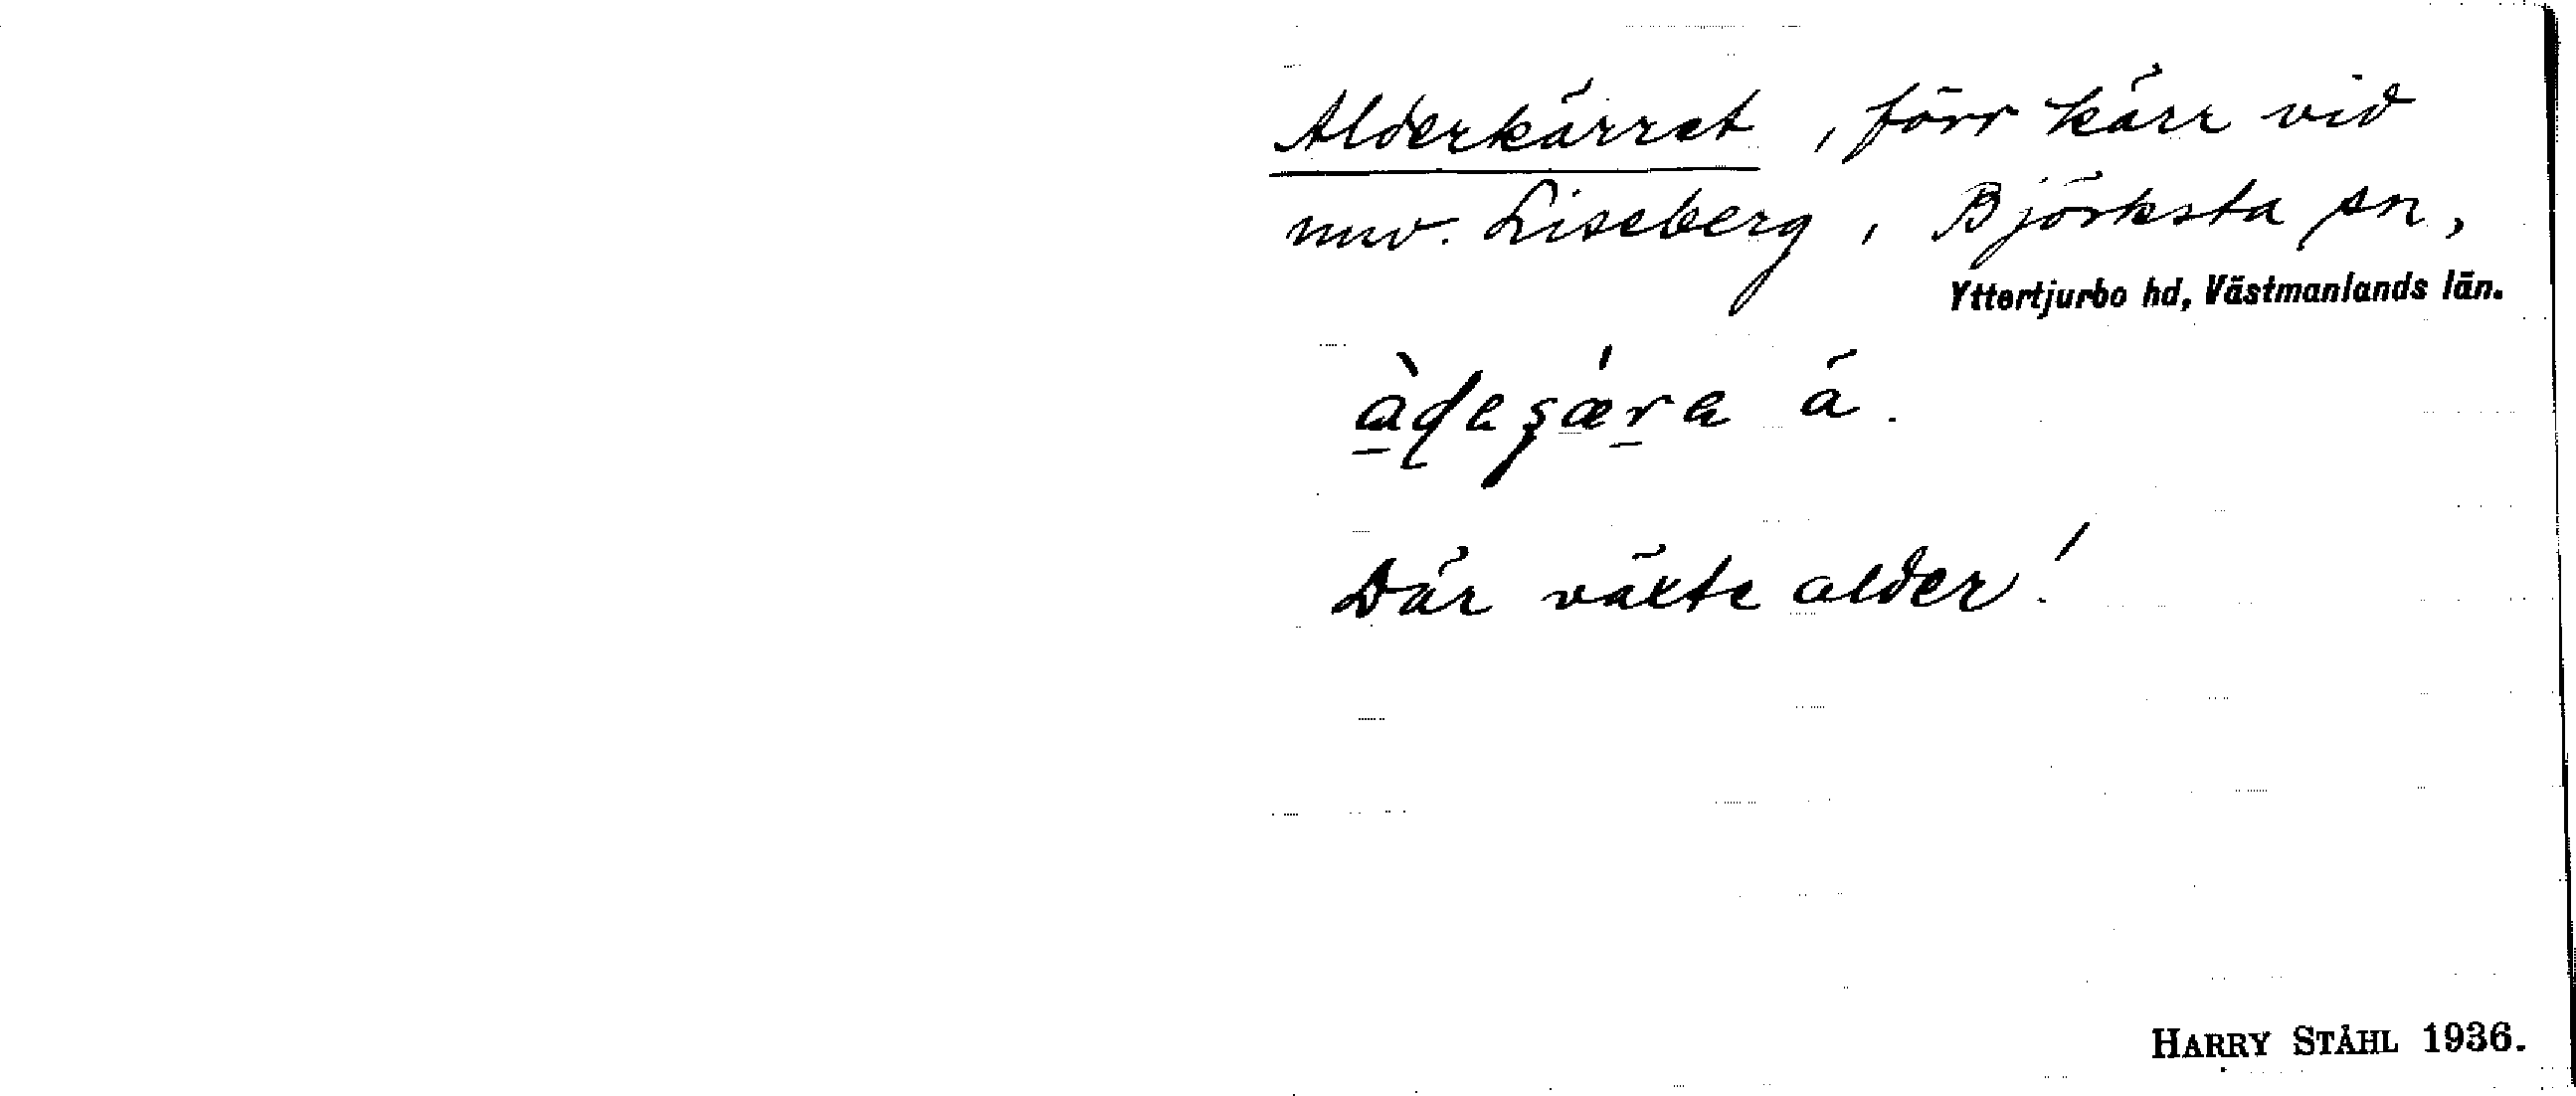 Alderkärret, förr kärr vid
nuv. Liseberg, Björksta sn,
Yttertjurbo hd, Västmanlands län.
ä.
Där växte alder!
HARRY STÅHL 1936.